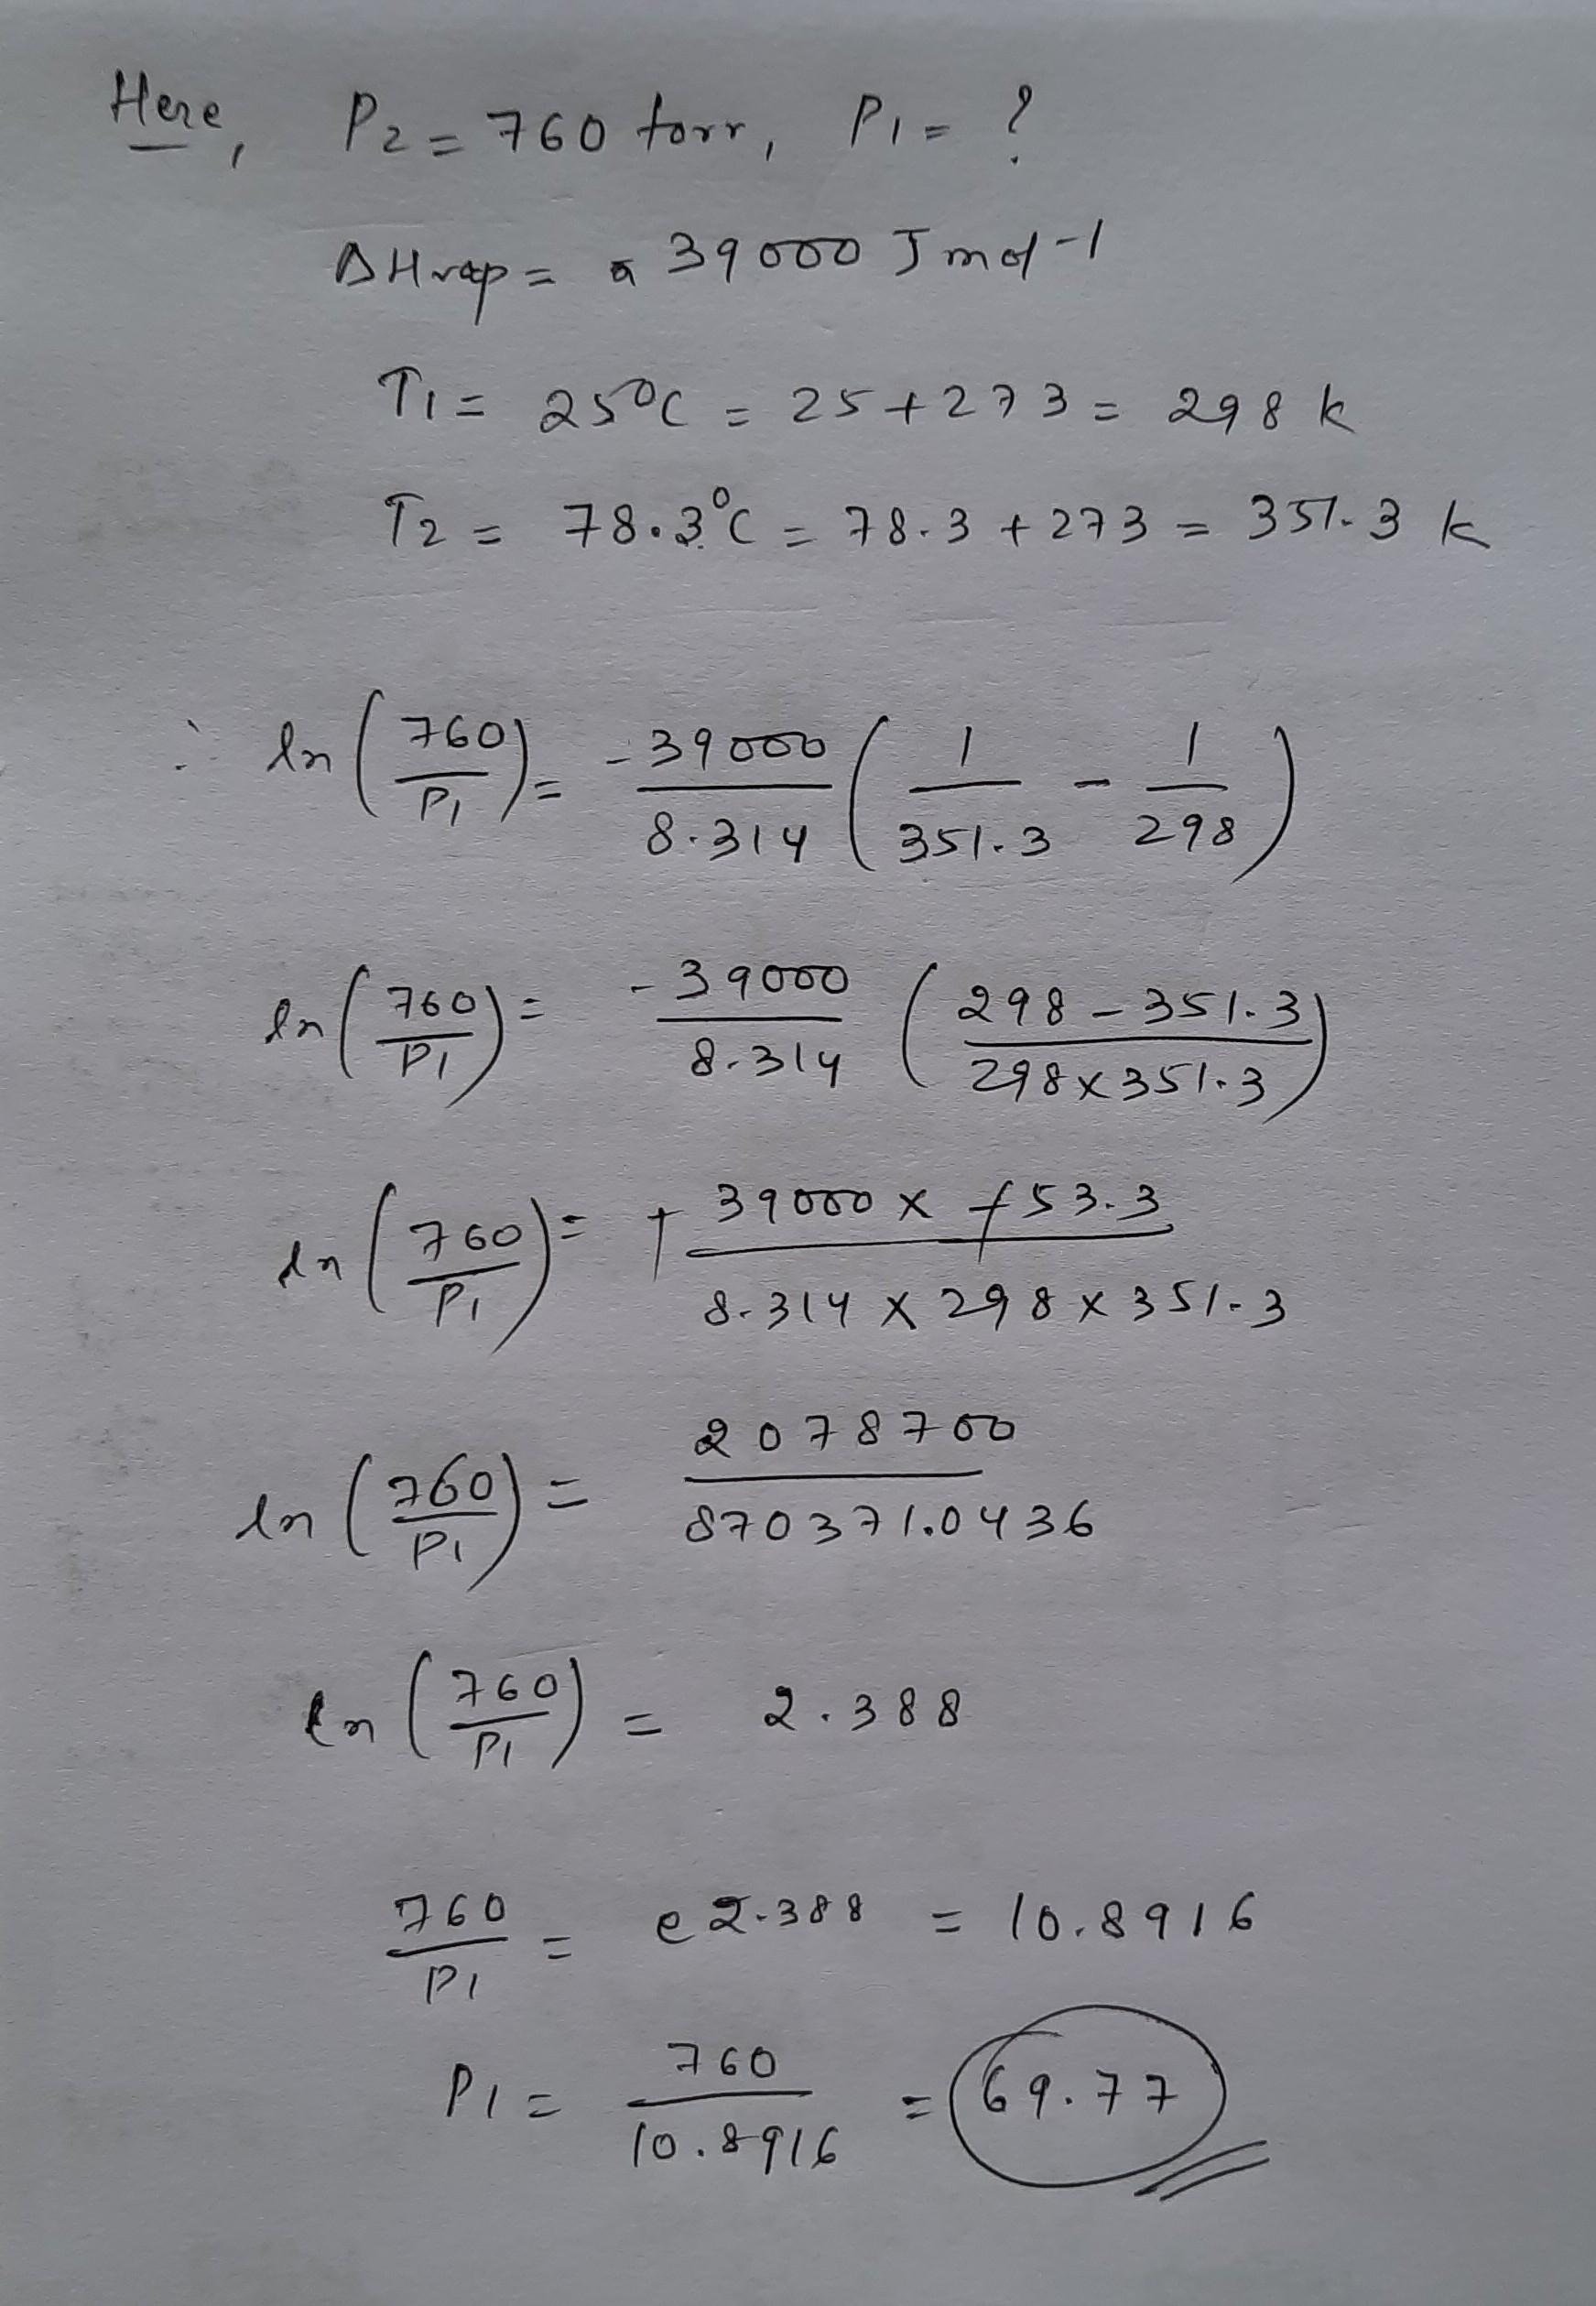 Here, P2 = 760 torr, P1 = ?
ΔHvap = 39000 J mol-1
T1 = 25°C = 25 + 273 = 298 k
T2 = 78.3°C = 78.3 + 273 = 351.3 k
∴ ln (760/P1) = -39000/8.314 (1/351.3 - 1/298)
ln (760/P1) = -39000/8.314 (298 - 351.3/298x351.3)
ln (760/P1) = + 39000 x +53.3/8.314 x 298 x 351.3
ln (760/P1) = 2078700/870371.0436
ln (760/P1) = 2.388
760/P1 = e2.388 = 10.8916
P1 = 760/10.8916 = 69.77